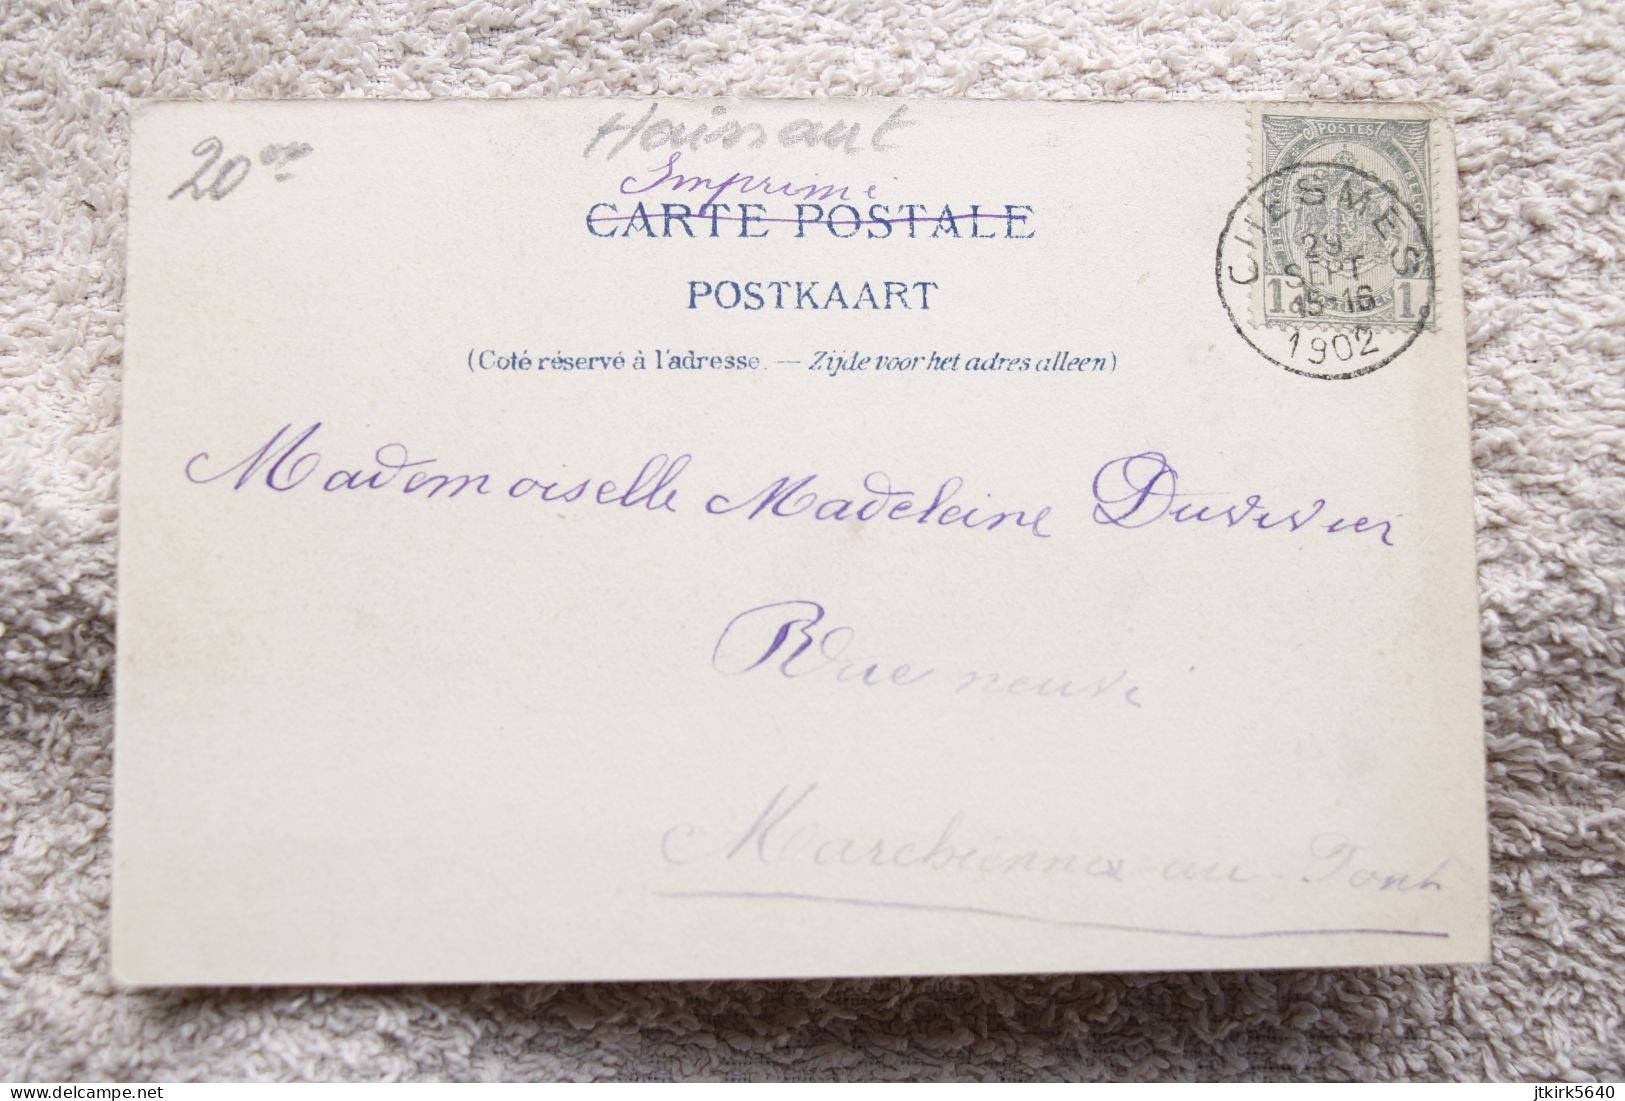 20
Hainaut
Imprimé
CARTE POSTALE
POSTKAART
(Coté réservé à l'adresse. — Zijde voor het adres alleen)
POSTES
1c 1c
CUESMES
29
SEPT
15-16
1902
Mademoiselle Madeleine Duvivier
Rue neuve
Marchienne-au-Pont
delcampe.net
jtkirk5640